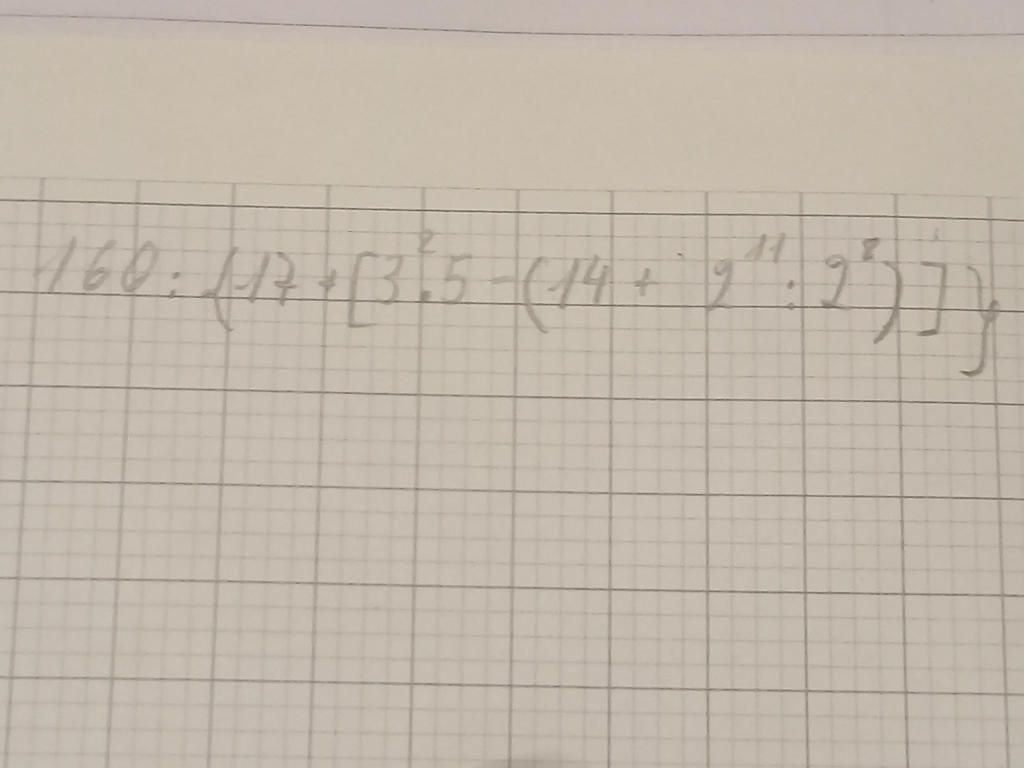 160 : {17 + [3² . 5 - (14 + 2¹¹ : 2⁸)]}